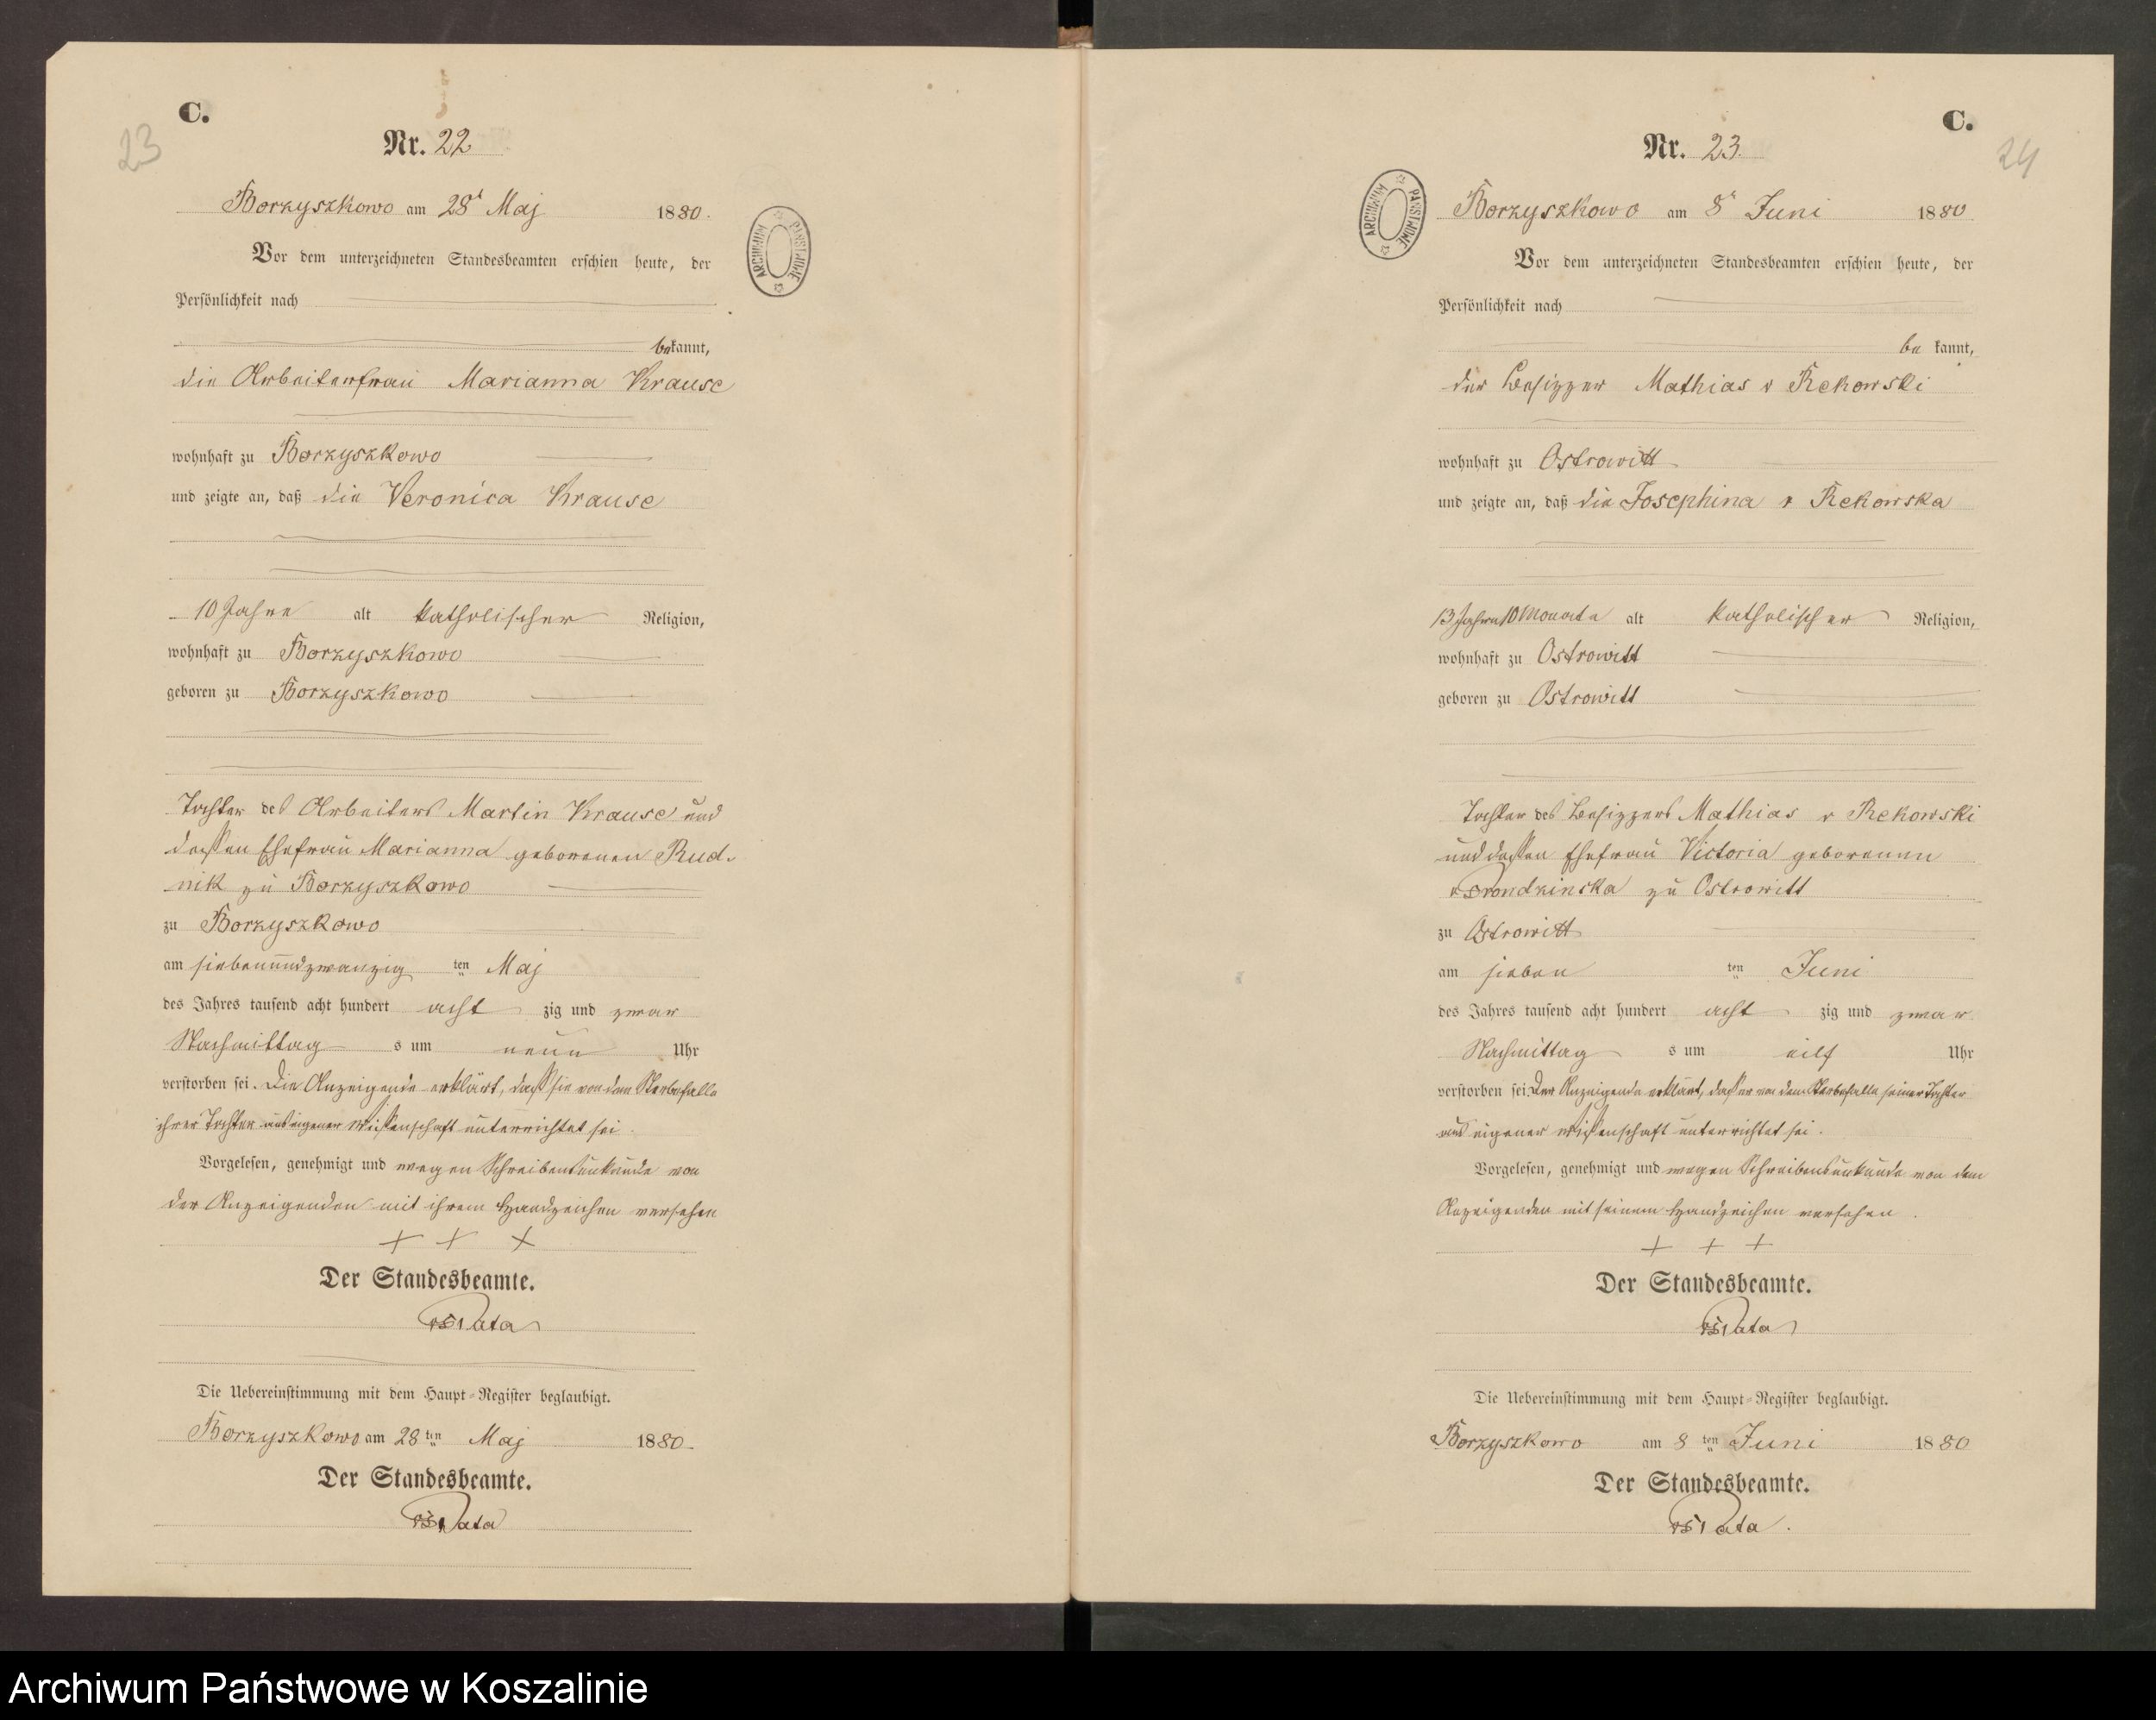 23
C.
Nr. 22
Borzyszkowo am 28t Maj 1880.
Vor dem unterzeichneten Standesbeamten erschien heute, der
Persönlichkeit nach
bekannt,
die Arbeiterfrau Marianna Krause
wohnhaft zu Borzyszkowo
und zeigte an, daß die Veronica Krause
10 Jahre alt katholischer Religion,
wohnhaft zu Borzyszkowo
geboren zu Borzyszkowo
Tochter des Arbeiters Martin Krause und
dessen Ehefrau Marianna geborenen Rud-
nik zu Borzyszkowo
zu Borzyszkowo
am siebenundzwanzig ten Maj
des Jahres tausend acht hundert acht zig und zwar
Nachmittag s um neun Uhr
verstorben sei. Die Anzeigende erklärt, daß sie von dem Sterbefalle
ihrer Tochter aus eigener Wissenschaft unterrichtet sei.
Vorgelesen, genehmigt und wegen Schreibensunkunde von
der Anzeigenden mit ihrem Handzeichen versehen
+ + +
Der Standesbeamte.
Die Uebereinstimmung mit dem Haupt-Register beglaubigt.
Borzyszkowo am 28 ten Maj 1880.
Der Standesbeamte.
ARCHIWUM PAŃSTWOWE
C.
24
Nr. 23.
Borzyszkowo am 8t Juni 1880
Vor dem unterzeichneten Standesbeamten erschien heute, der
Persönlichkeit nach
be kannt,
der Besizzer Mathias v Rekowski
wohnhaft zu Ostrowitt
und zeigte an, daß die Josephina v Rekowska
13 Jahre 10 Monate alt katholischer Religion,
wohnhaft zu Ostrowitt
geboren zu Ostrowitt
Tochter des Besizzers Mathias v Rekowski
und dessen Ehefrau Victoria geborenen
zu Ostrowitt
zu Ostrowitt
am sieben ten Juni
des Jahres tausend acht hundert acht zig und zwar
Nachmittag s um eilf Uhr
verstorben sei. Der Anzeigende erklärt, daß er von dem Sterbefalle seiner Tochter
aus eigener Wissenschaft unterrichtet sei.
Vorgelesen, genehmigt und wegen Schreibensunkunde von dem
Anzeigenden mit seinem Handzeichen versehen.
+ + +
Der Standesbeamte.
Die Uebereinstimmung mit dem Haupt-Register beglaubigt.
Borzyszkowo am 8 ten Juni 1880
Der Standesbeamte.
ARCHIWUM PAŃSTWOWE
Archiwum Państwowe w Koszalinie